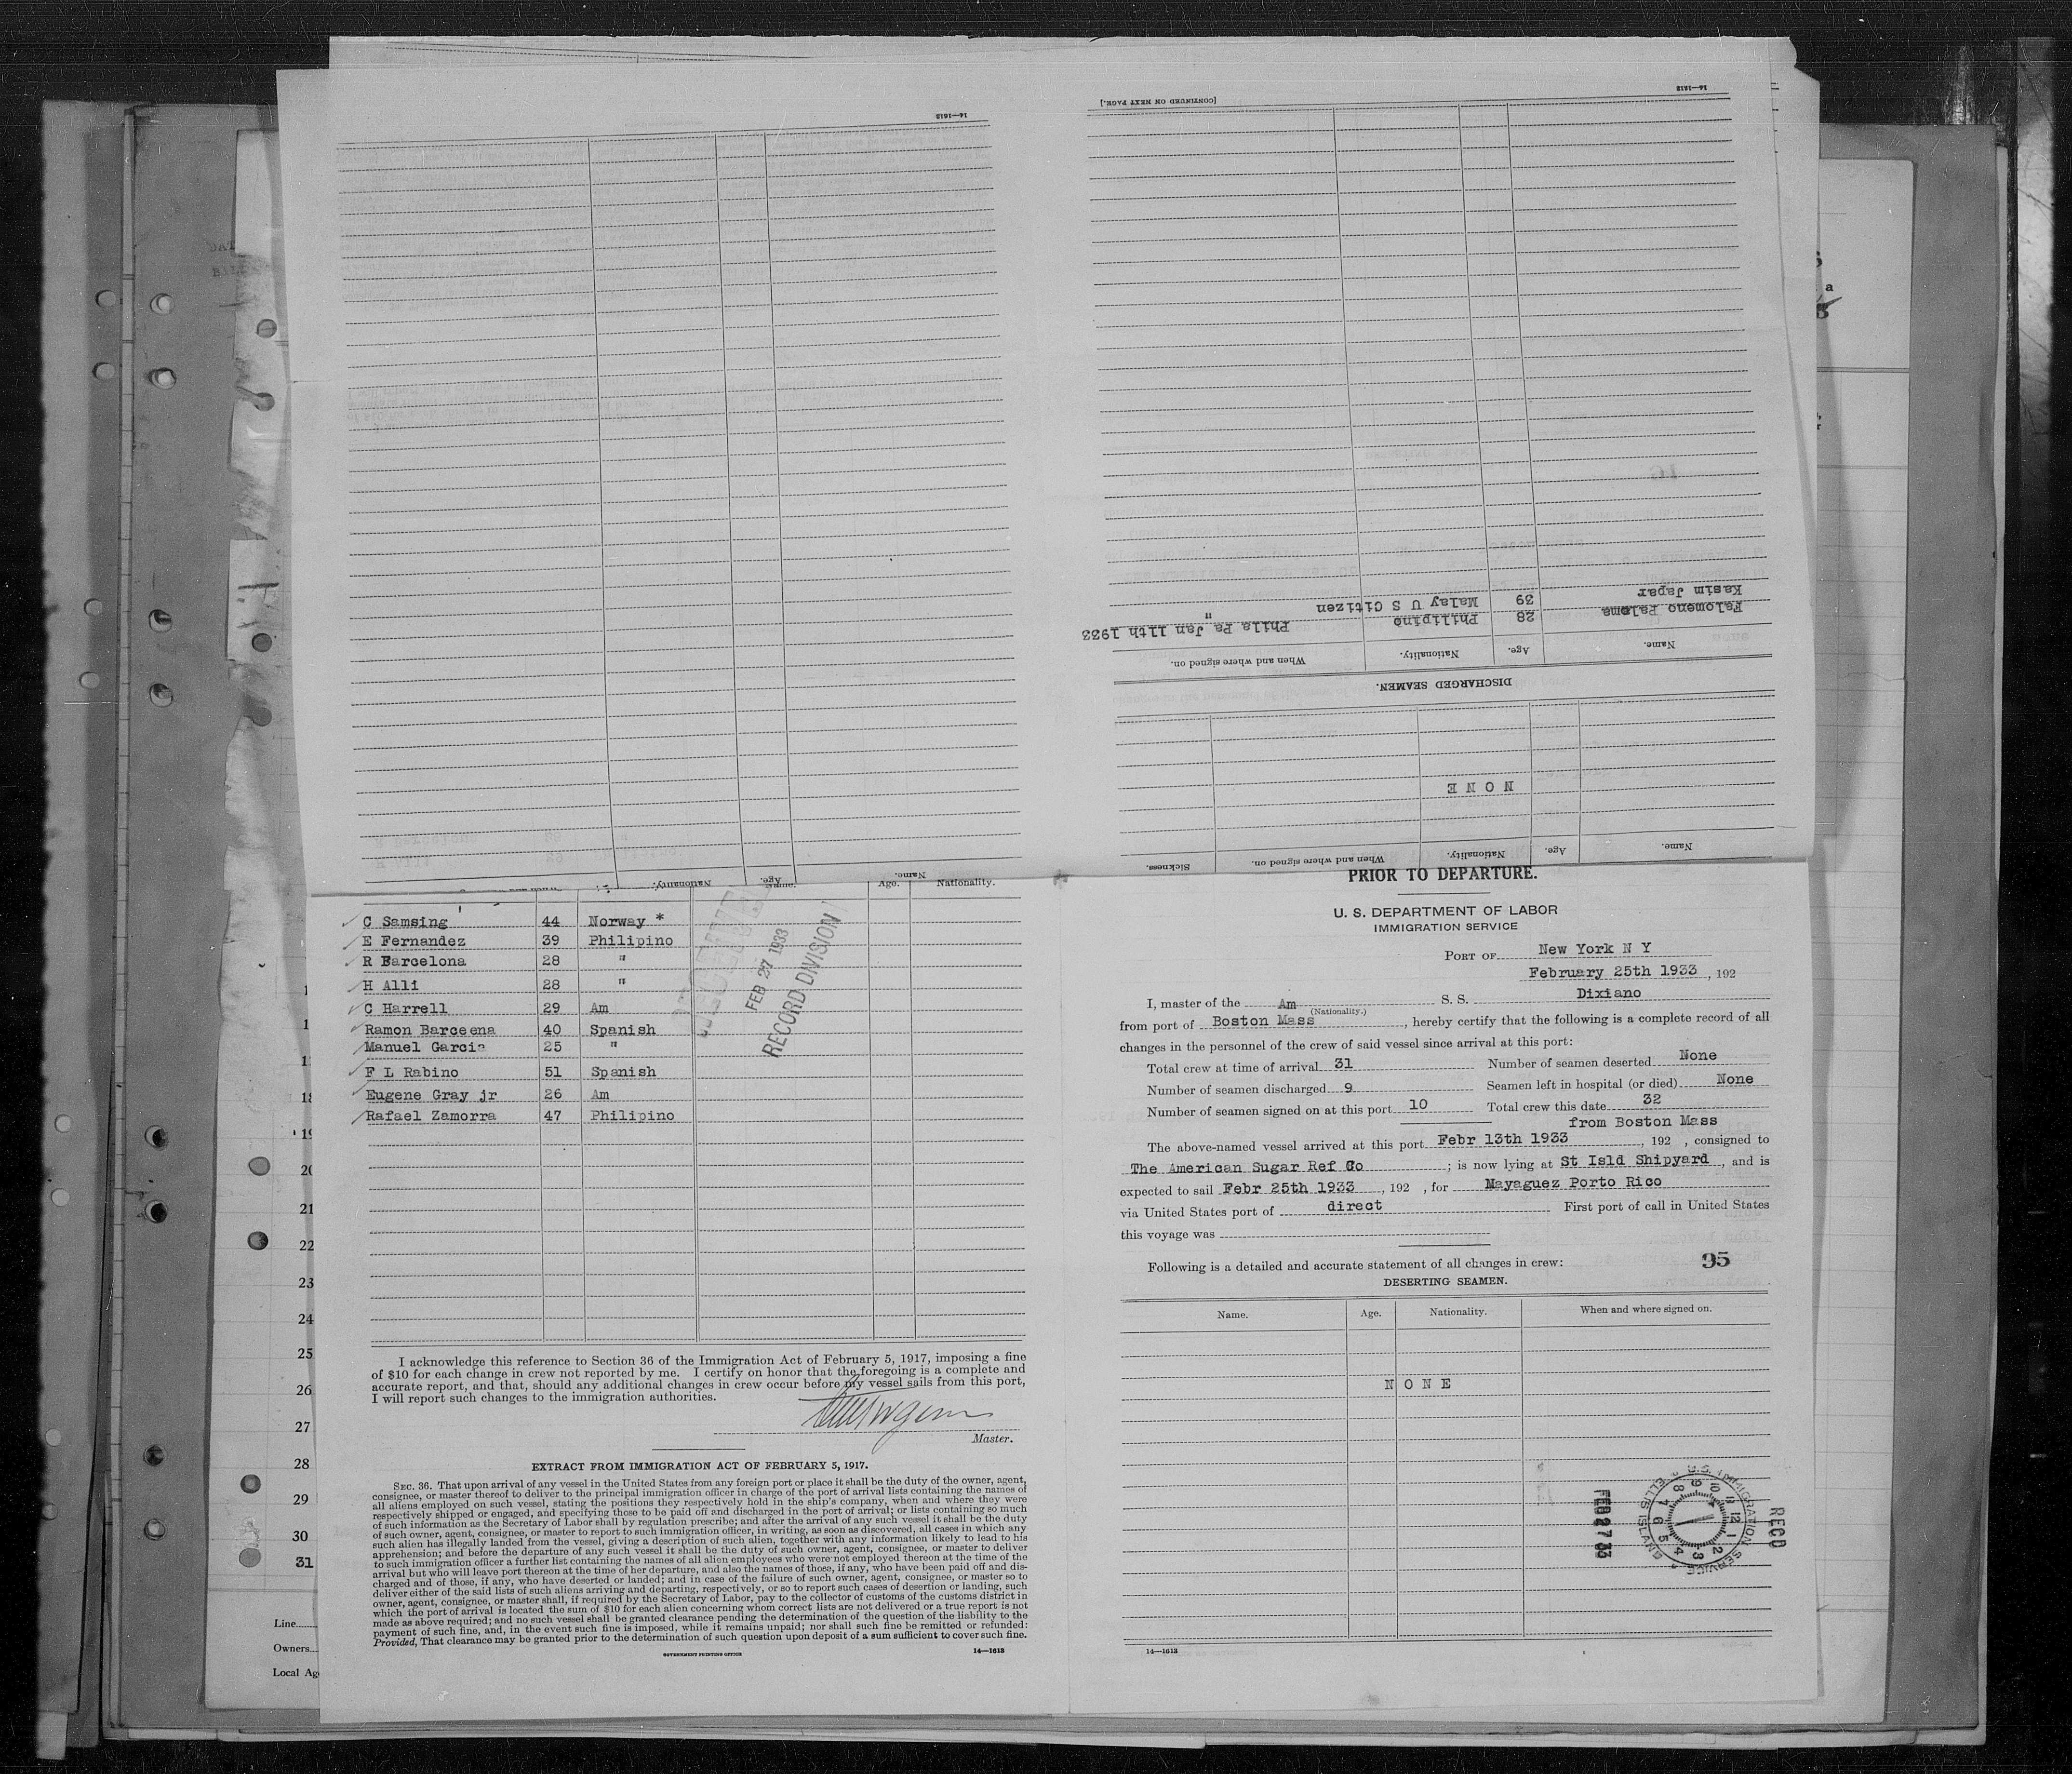 14—1613
[CONTINUED ON NEXT PAGE.]
14—1613
Kasim Japar 39 Malay U S Citizen "
Falomeno Paloma 28 Philipino Phila Pa Jan 11th 1933
Name. Age. Nationality. When and where signed on.
DISCHARGED SEAMEN.
NONE
Name. Age. Nationality. When and where signed on. Sickness.
Name. Age. Nationality.
Age. Nationality.
C Samsing 44 Norway *
E Fernandez 39 Philipino
R Barcelona 28 "
H Alli 28 "
C Harrell 29 Am
Ramon Barceena 40 Spanish
Manuel Garcia 25 "
F L Rabino 51 Spanish
Eugene Gray jr 26 Am
Rafael Zamorra 47 Philipino
FEB 27 1933
RECORD DIVISION
I acknowledge this reference to Section 36 of the Immigration Act of February 5, 1917, imposing a fine
of $10 for each change in crew not reported by me. I certify on honor that the foregoing is a complete and
accurate report, and that, should any additional changes in crew occur before my vessel sails from this port,
I will report such changes to the immigration authorities.
Master.
EXTRACT FROM IMMIGRATION ACT OF FEBRUARY 5, 1917.
SEC. 36. That upon arrival of any vessel in the United States from any foreign port or place it shall be the duty of the owner, agent,
consignee, or master thereof to deliver to the principal immigration officer in charge of the port of arrival lists containing the names of
all aliens employed on such vessel, stating the positions they respectively hold in the ship's company, when and where they were
respectively shipped or engaged, and specifying those to be paid off and discharged in the port of arrival; or lists containing so much
of such information as the Secretary of Labor shall by regulation prescribe; and after the arrival of any such vessel it shall be the duty
of such owner, agent, consignee, or master to report to such immigration officer, in writing, as soon as discovered, all cases in which any
such alien has illegally landed from the vessel, giving a description of such alien, together with any information likely to lead to his
apprehension; and before the departure of any such vessel it shall be the duty of such owner, agent, consignee, or master to deliver
to such immigration officer a further list containing the names of all alien employees who were not employed thereon at the time of the
arrival but who will leave port thereon at the time of her departure, and also the names of those, if any, who have been paid off and dis-
charged and of those, if any, who have deserted or landed; and in case of the failure of such owner, agent, consignee, or master so to
deliver either of the said lists of such aliens arriving and departing, respectively, or so to report such cases of desertion or landing, such
owner, agent, consignee, or master shall, if required by the Secretary of Labor, pay to the collector of customs of the customs district in
which the port of arrival is located the sum of $10 for each alien concerning whom correct lists are not delivered or a true report is not
made as above required; and no such vessel shall be granted clearance pending the determination of the question of the liability to the
payment of such fine, and, in the event such fine is imposed, while it remains unpaid; nor shall such fine be remitted or refunded:
Provided, That clearance may be granted prior to the determination of such question upon deposit of a sum sufficient to cover such fine.
GOVERNMENT PRINTING OFFICE 14—1613
PRIOR TO DEPARTURE.
U. S. DEPARTMENT OF LABOR
IMMIGRATION SERVICE
PORT OF New York N Y
February 25th 1933, 192
I, master of the Am S. S. Dixiano
(Nationality.)
from port of Boston Mass, hereby certify that the following is a complete record of all
changes in the personnel of the crew of said vessel since arrival at this port:
Total crew at time of arrival 31 Number of seamen deserted None
Number of seamen discharged 9 Seamen left in hospital (or died) None
Number of seamen signed on at this port 10 Total crew this date 32
from Boston Mass
The above-named vessel arrived at this port Febr 13th 1933, 192 , consigned to
The American Sugar Ref Co; is now lying at St Isld Shipyard, and is
expected to sail Febr 25th 1933, 192 , for Mayaguez Porto Rico
via United States port of direct First port of call in United States
this voyage was
Following is a detailed and accurate statement of all changes in crew: 95
DESERTING SEAMEN.
Name. Age. Nationality. When and where signed on.
NONE
RECD
U. S. IMMIGRATION SERVICE
ELLIS ISLAND
FEB 27 33
14—1613
19
20
21
22
23
24
25
26
27
28
29
30
31
Line
Owners
Local Ag